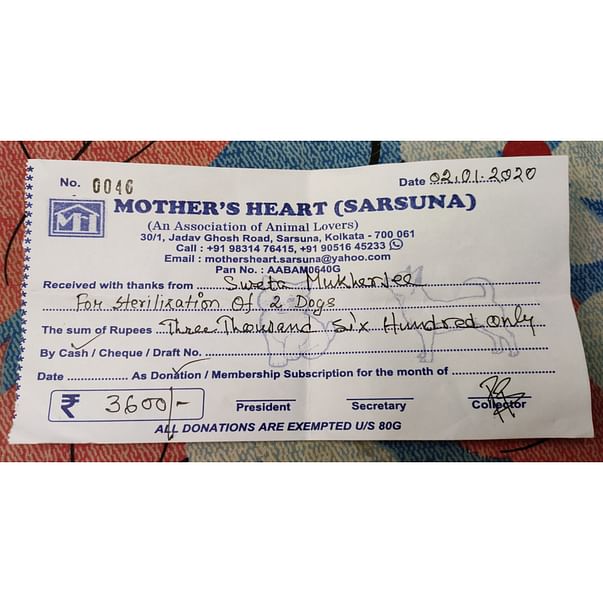 No. 0046 Date 02.01.2020
MH
MOTHER'S HEART (SARSUNA)
(An Association of Animal Lovers)
30/1, Jadav Ghosh Road, Sarsuna, Kolkata - 700 061
Call : +91 98314 76415, +91 90516 45233
Email : mothersheart.sarsuna@yahoo.com
Pan No. : AABAM0640G
Received with thanks from Sweta Mukherjee
For Sterilization Of 2 Dogs
The sum of Rupees Three Thousand Six Hundred Only
By Cash / Cheque / Draft No.
Date As Donation / Membership Subscription for the month of
₹ 3600/- President Secretary Collector
ALL DONATIONS ARE EXEMPTED U/S 80G